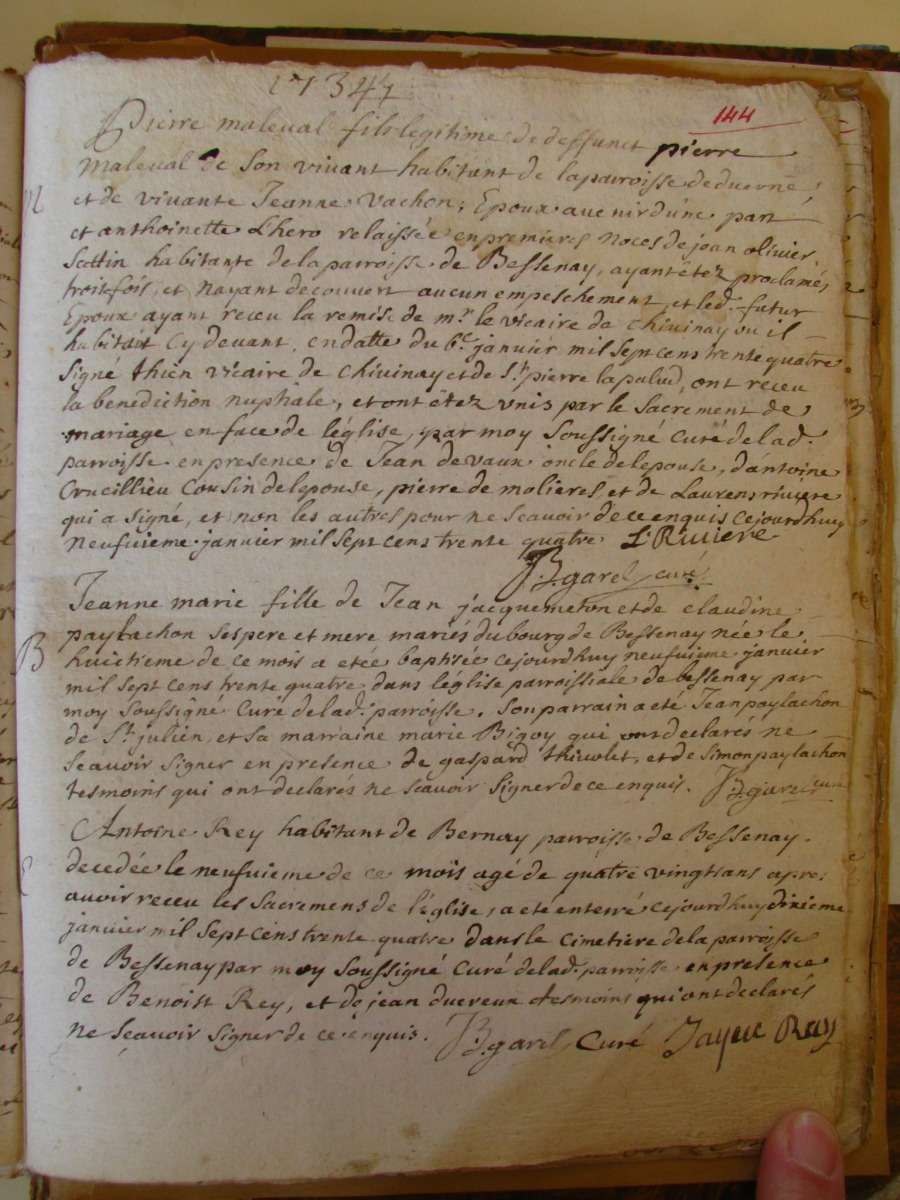 1734
144
Pierre maleval fils legitime de deffunct pierre
maleval de son vivant habitant de la parroisse de duerne
M
et de vivante Jeanne vachon, Epoux avenir d'une part
et anthoinette Lhero relaissée en premieres Noces de jean olivier
habitante de la parroisse de Bessenay, ayant êtez proclamés
trois fois, et Nayant decouvert aucun empeschement, et led. futur
Epoux ayant receu la remise de mr. le vicaire de chivinay ou il
habitait cy devant, en datte du 6e. janvier mil sept cens trente quatre
signé thien vicaire de chivinay et de St. pierre la palud, ont receu
la benediction nuptiale, et ont êtez unis par le sacrement de
mariage en face de léglise, par moy soussigné curé de lad.
parroisse en presence de Jean devaux oncle de lepouse, d'antoine
Crucillieu Cousin de lepouse, pierre de molieres et de Laurens riviere
qui a signé, et non les autres pour ne scavoir de ce enquis cejourdhuy
neufvieme janvier mil sept cens trente quatre L Riviere
garel curé
Jeanne marie fille de Jean jacquemeton et de claudine
paylachon ses pere et mere mariés du bourg de Bessenay née le
B
huictieme de ce mois a etée baptisée cejourdhuy neufvieme janvier
mil sept cens trente quatre dans léglise parroissiale de bessenay par
moy soussigné Curé de lad. parroisse. Son parrain a eté Jean paylachon
de St. julien, et sa marraine marie Bigoy qui ont declarés ne
scavoir signer en presence de gaspard thivolet, et de simon paylachon
tesmoins qui ont declarés ne scavoir signer de ce enquis. garel curé
Antoine Rey habitant de Bernay parroisse de Bessenay
decedée le neufvieme de ce mois agé de quatre vingts ans apres
avoir receu les sacremens de léglise, a eté enterré cejourdhuy dixieme
janvier mil sept cens trente quatre dans le cimetière de la parroisse
de Bessenay par moy soussigné curé de lad. parroisse en presence
de Benoist Rey, et de jean duereux tesmoins qui ont declarés
ne scavoir signer de ce enquis. garel curé Ray